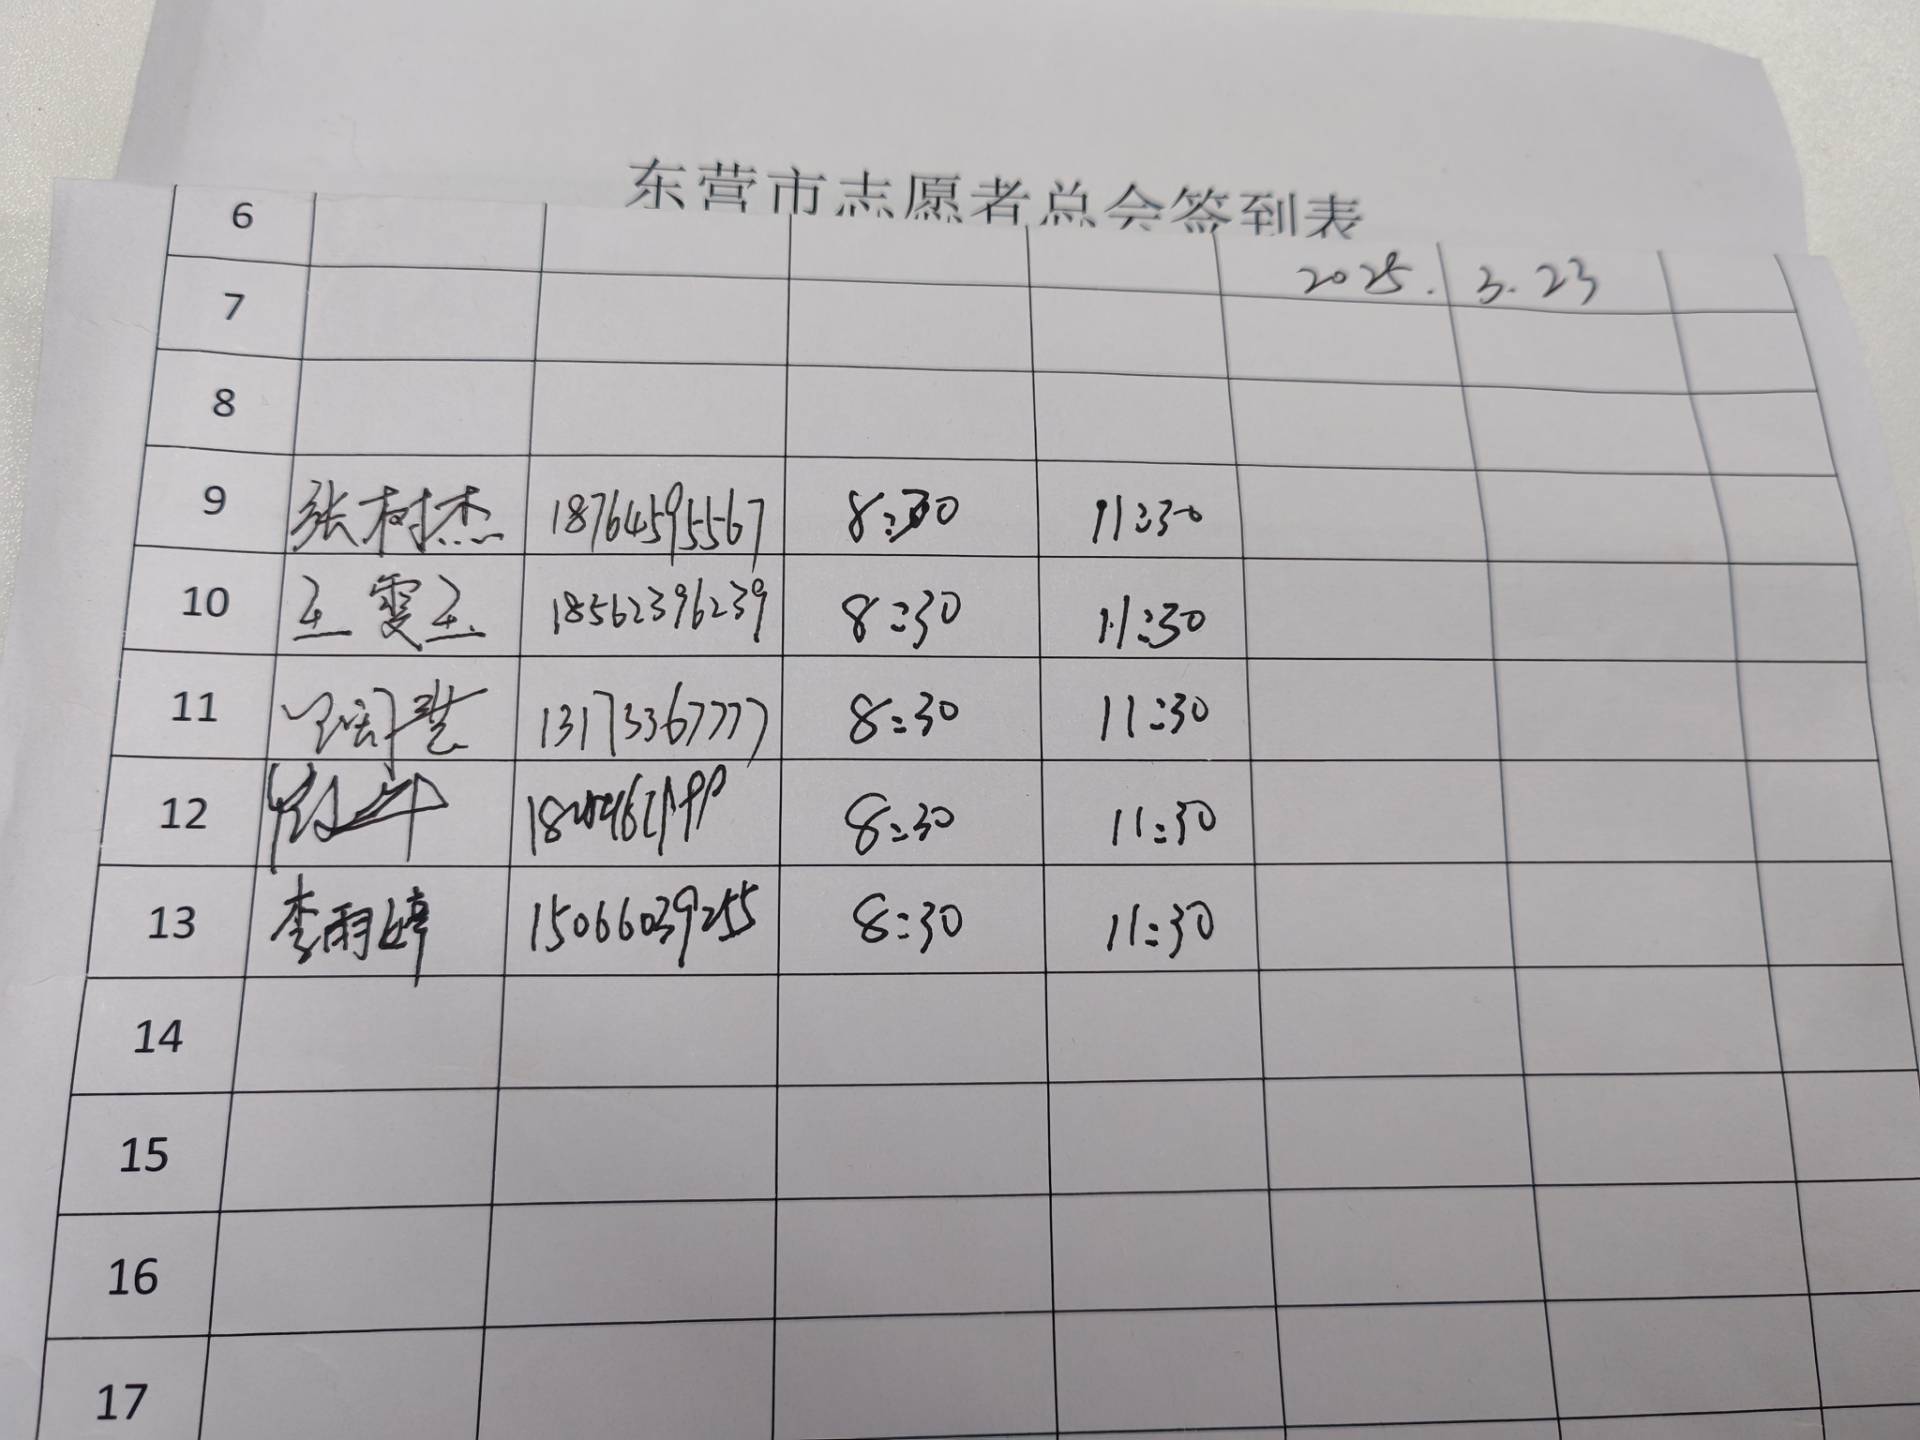 东营市志愿者总会签到表
6
2025. 3. 23
7
8
9 张树杰 18764595567 8:30 11:30
10 王雯玉 18562396239 8:30 11:30
11 13173367777 8:30 11:30
12 8:30 11:30
13 李雨婷 15066039255 8:30 11:30
14
15
16
17